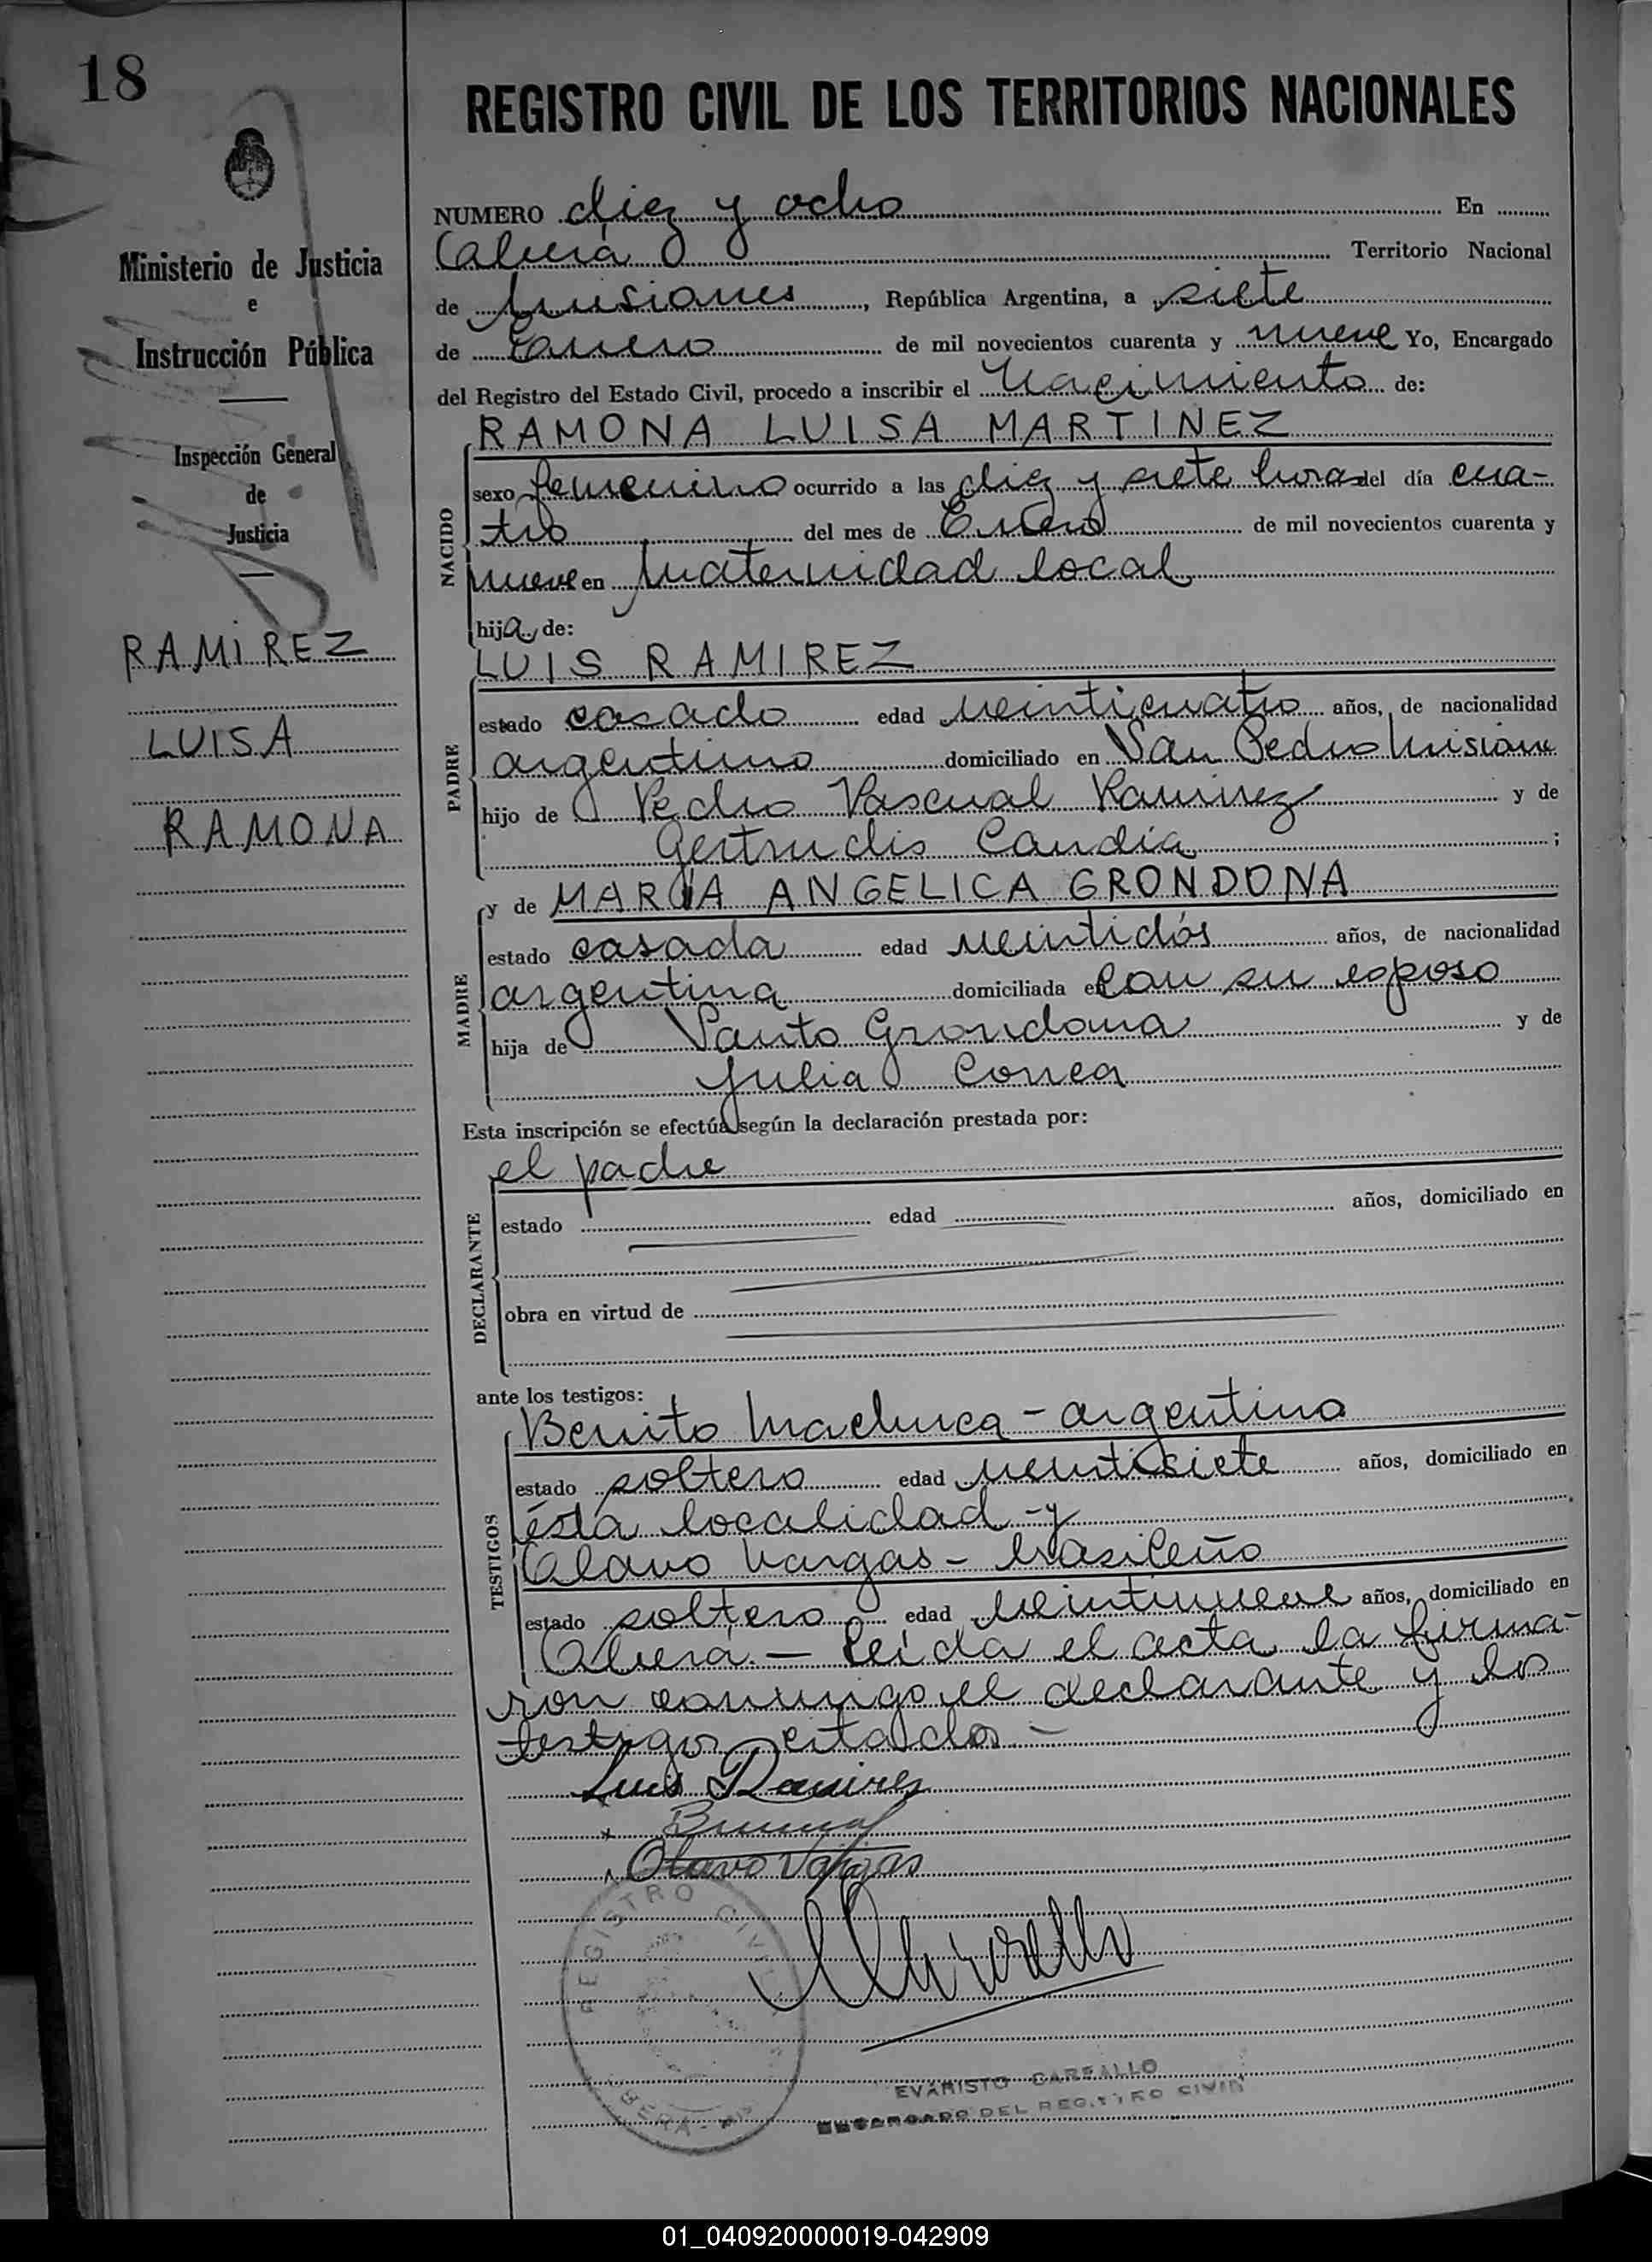 18
REGISTRO CIVIL DE LOS TERRITORIOS NACIONALES
Ministerio de Justicia
e
Instrucción Pública
Inspección General
de
Justicia
RAMIREZ
LUISA
RAMONA
NUMERO diez y ocho En
Oberá Territorio Nacional
de Misiones, República Argentina, a siete
de Enero de mil novecientos cuarenta y nueve Yo, Encargado
del Registro del Estado Civil, procedo a inscribir el Nacimiento de:
NACIDO
RAMONA LUISA MARTINEZ
sexo femenino ocurrido a las diez y siete horas del día cua-
tro del mes de Enero de mil novecientos cuarenta y
nueve en Maternidad local
hija de:
PADRE
LUIS RAMIREZ
estado casado edad veinticuatro años, de nacionalidad
argentino domiciliado en San Pedro Misiones
hijo de Pedro Pascual Ramirez y de
Gertrudis Candia ;
MADRE
y de MARIA ANGELICA GRONDONA
estado casada edad veintidós años, de nacionalidad
argentina domiciliada en con su esposo
hija de Santo Grondona y de
Julia Correa
Esta inscripción se efectúa según la declaración prestada por:
DECLARANTE
el padre
estado edad años, domiciliado en
obra en virtud de
ante los testigos:
TESTIGOS
Benito Machuca - argentino
estado soltero edad veintisiete años, domiciliado en
ésta localidad - y
Olavo Vargas - brasileño
estado soltero edad veintinueve años, domiciliado en
Oberá. - Leída el acta la firma-
ron conmigo el declarante y los
testigos citados. -
Luis Ramirez
Olavo Vargas
REGISTRO CIVIL
OBERÁ - Mis
EVARISTO CARBALLO
ENCARGADO DEL REGISTRO CIVIL
01_040920000019-042909